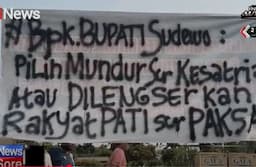 iNews
# Bpk.BUPATI Sudewo :
PILIH MUNDUR Scr KESATRI
Atau DILENGSERKAN
RAKYAT PATI scr PAKSA
iNews
Sore